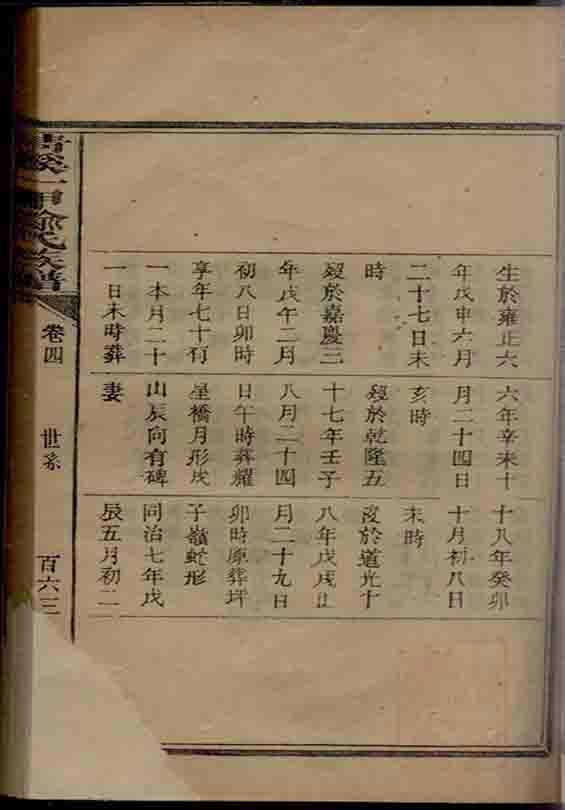 生於雍正六
年戊申六月
二十七日未
時
歿於嘉慶三
年戊午二月
初八日卯時
享年七十有
一本月二十
一日未時葬
六年辛未十
月二十四日
亥時
歿於乾隆五
十七年壬子
八月二十四
日午時葬耀
星橋月形戌
山辰向有碑
妻
十八年癸卯
十月初八日
未時
歿於道光十
八年戊戌正
月二十九日
卯時原葬坪
子嶺蛇形
同治七年戊
辰五月初二
溪一甲俞氏族譜
卷四
世系
百六三